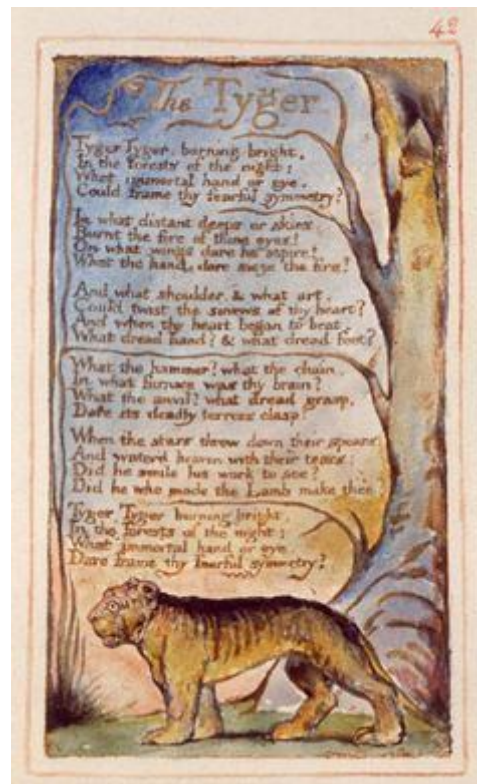 42
The Tyger
Tyger Tyger, burning bright,
In the forests of the night;
What immortal hand or eye,
Could frame thy fearful symmetry?
In what distant deeps or skies,
Burnt the fire of thine eyes?
On what wings dare he aspire?
What the hand, dare sieze the fire?
And what shoulder, & what art,
Could twist the sinews of thy heart?
And when thy heart began to beat,
What dread hand? & what dread feet?
What the hammer? what the chain,
In what furnace was thy brain?
What the anvil? what dread grasp,
Dare its deadly terrors clasp?
When the stars threw down their spears
And water'd heaven with their tears:
Did he smile his work to see?
Did he who made the Lamb make thee?
Tyger Tyger burning bright,
In the forests of the night;
What immortal hand or eye
Dare frame thy fearful symmetry?